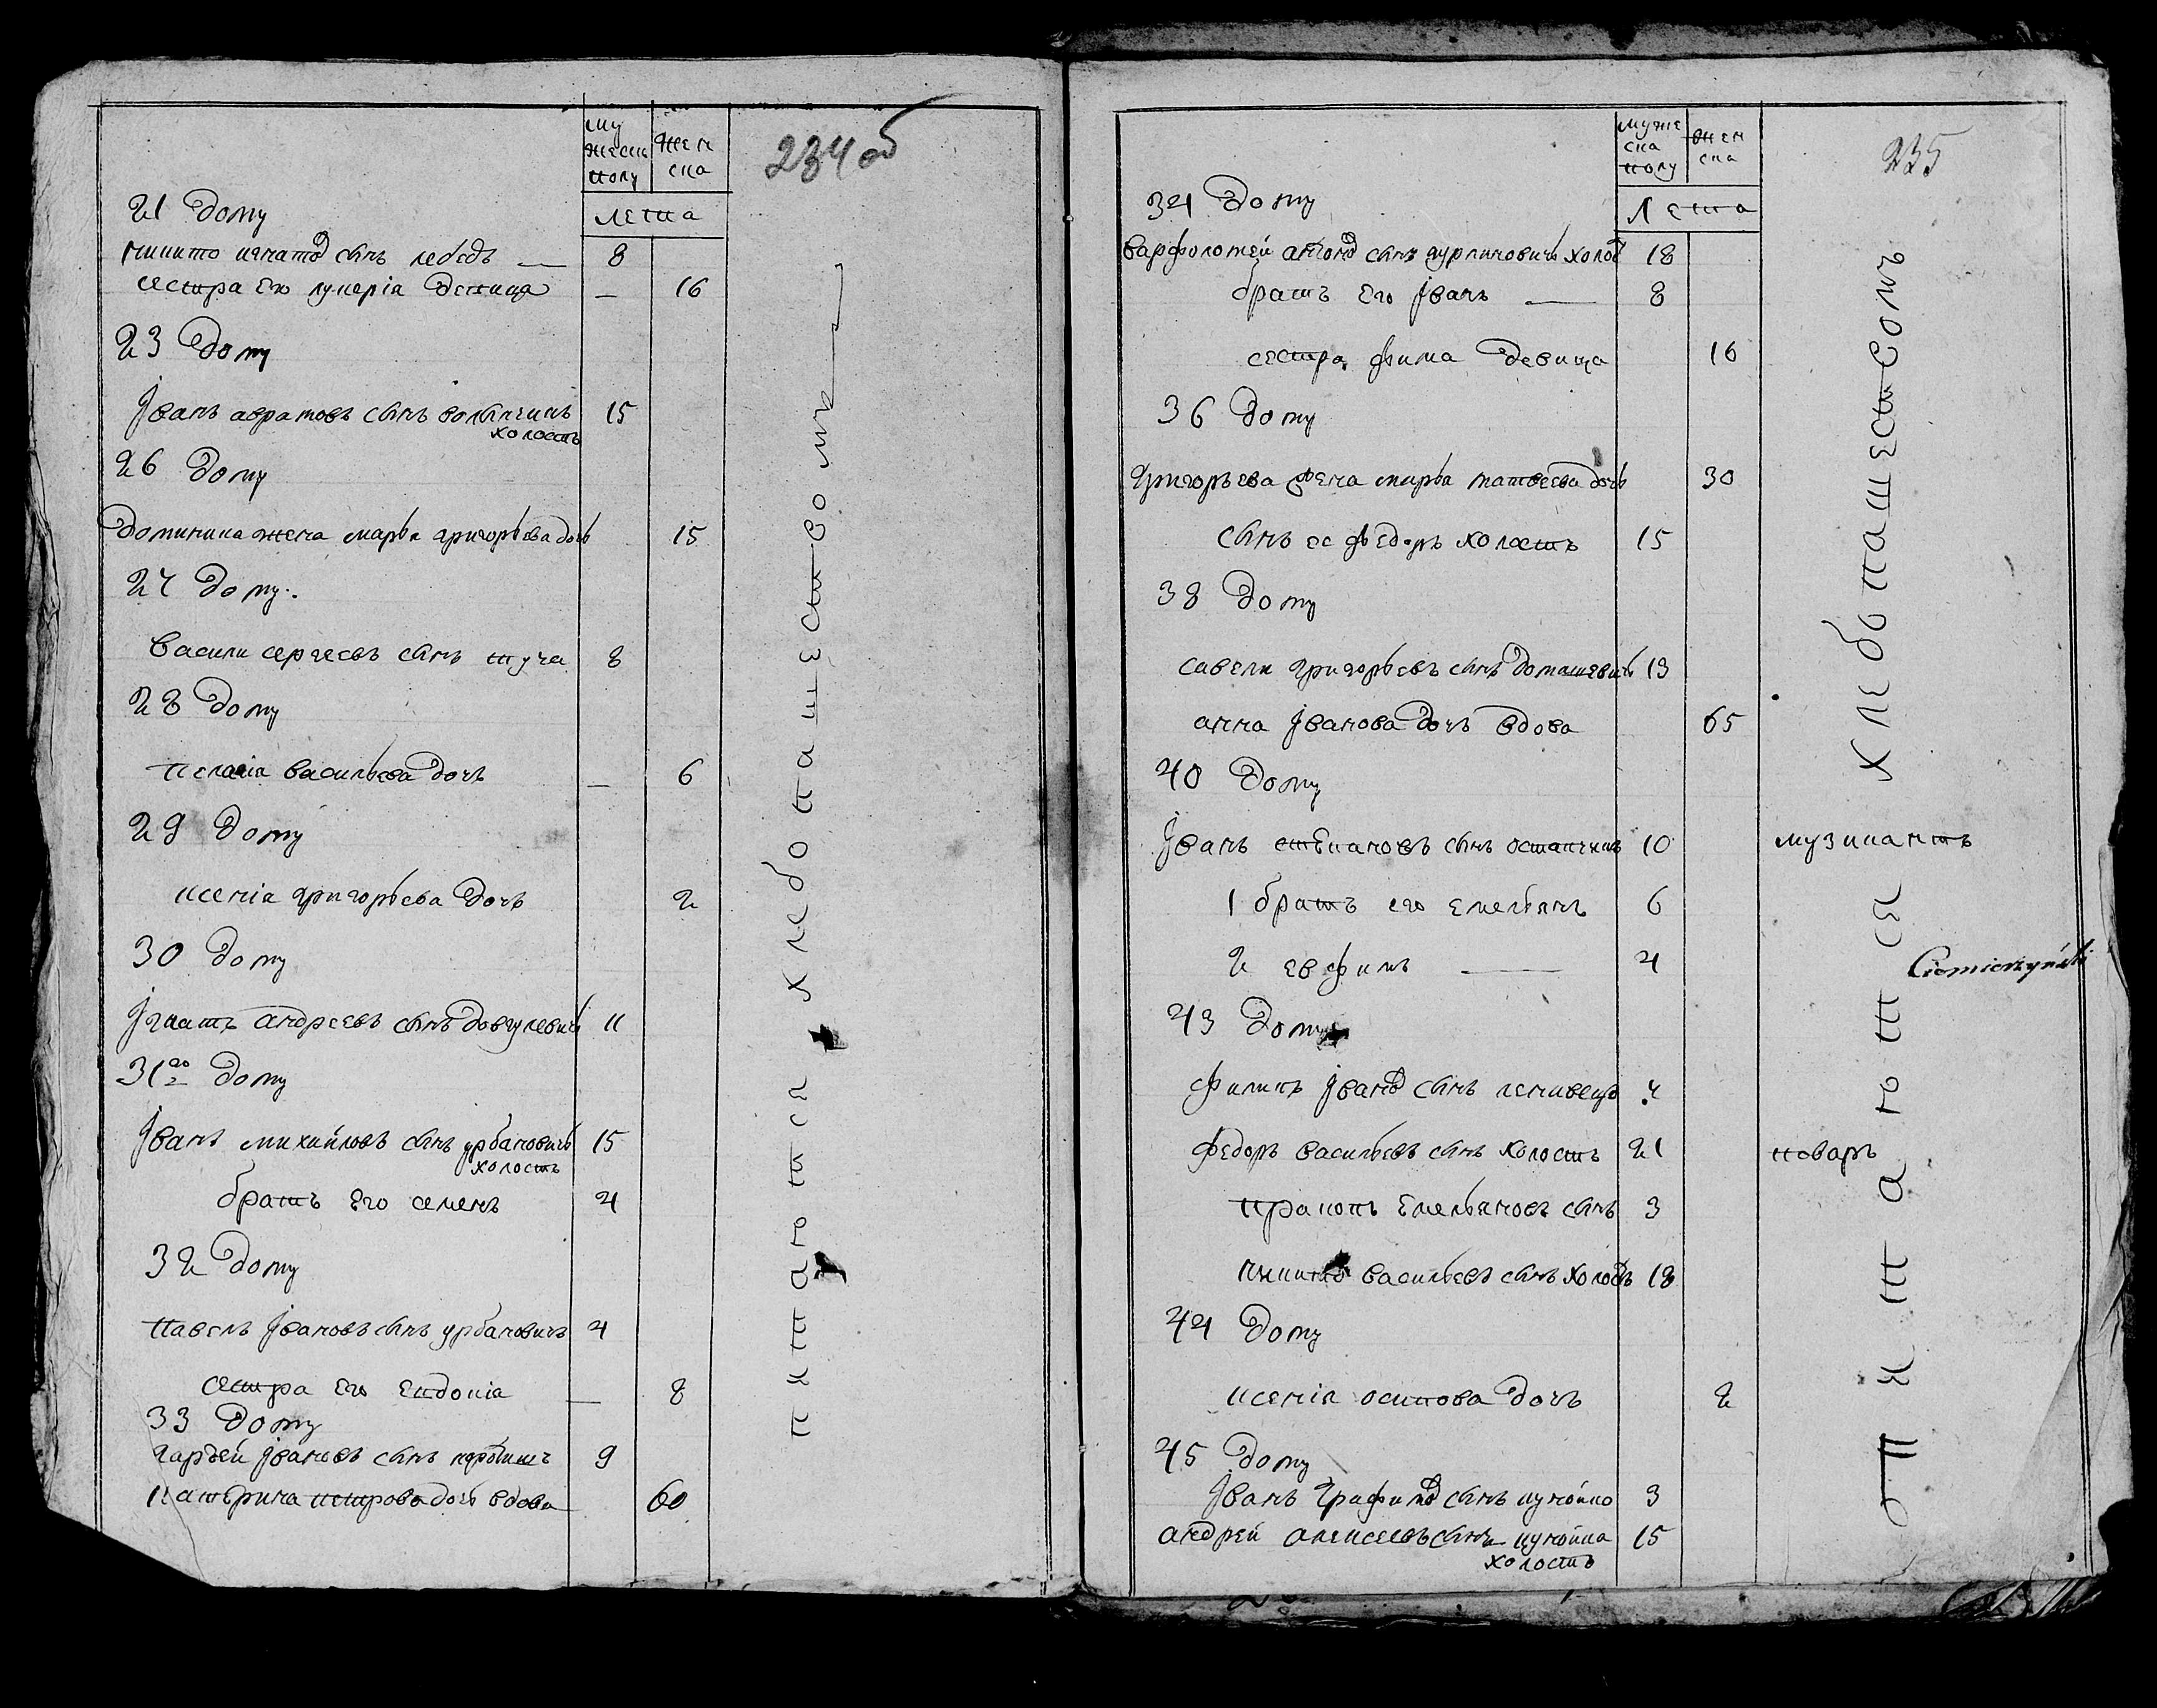 му
жеска
полу
женска
234 об
лета
21 дому
никита игнатов сынъ лебедь — 8
сестра его лукерія девица — 16
23 дому
Iванъ аврамовъ сынъ
холостъ 15
26 дому
доминика жена марья григорьева дочь 15
27 дому
василии сергеевъ сынъ туча 8
28 дому
пелагія васильева дочь — 6
29 дому
ксенія григорьева дочь 2
30 дому
Iгнатъ андреевъ сынъ довгулевичъ 11
31го дому
Iванъ михайловъ сынъ урбановичъ
холостъ 15
братъ его семенъ 4
32 дому
павелъ Iвановъ сынъ урбановичъ 4
сестра его евдокіа — 8
33 дому
гардей Iвановъ сынъ 9
катерина петрова дочь вдова 60
питаются хлебопашествомъ
муже
ска
полу
жен
ска
235
лета
34 дому
варфоломей антонов сынъ холос 18
братъ его Iванъ — 8
сестра фима девица 16
36 дому
григорьева жена марья матвеева дочь 30
сынъ ее федоръ холостъ 15
38 дому
савели григорьевъ сынъ домашевичъ 13
анна Iванова дочь вдова 65
40 дому
Iванъ степановъ сынъ 10 музикантъ
1 братъ его емельянъ 6
2 евфимъ — 4
43 дому
филипъ Iванов сынъ 7
федоръ васильевъ сынъ холостъ 21 поваръ
пракопъ емельяновъ сынъ 3
никита васильевъ сынъ холостъ 18
44 дому
ксенія осипова дочь 2
45 дому
Iванъ трафимов сынъ 3
андрей алексеевъ сынъ
холостъ 15
питаются хлебопашествомъ